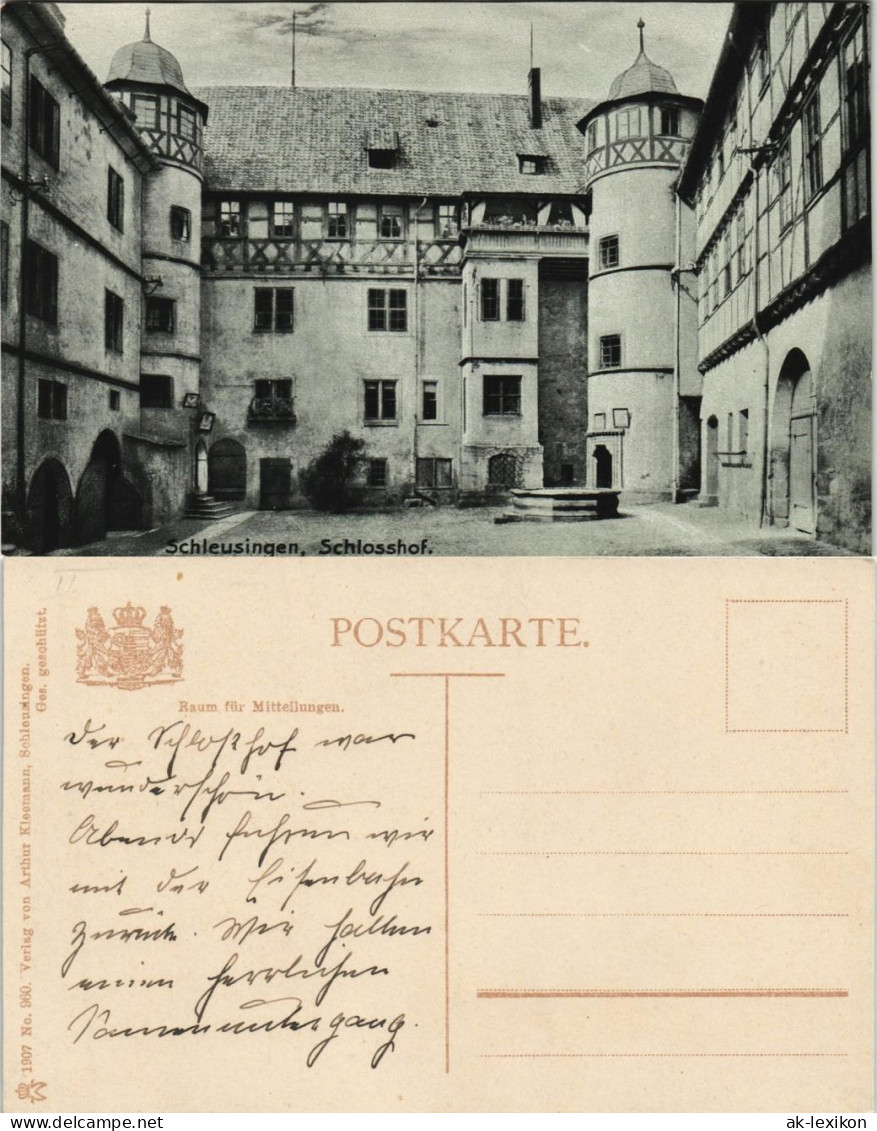 Schleusingen, Schlosshof.
POSTKARTE.
Raum für Mitteilungen.
Der Schloßhof war
wunderschön.
Abends fuhren wir
mit der Eisenbahn
zurück. Wir hatten
einen herrlichen
Sonnenuntergang.
Ges. geschützt.
1907 No. 960. Verlag von Arthur Kleemann, Schleusingen.
www.delcampe.net
ak-lexikon